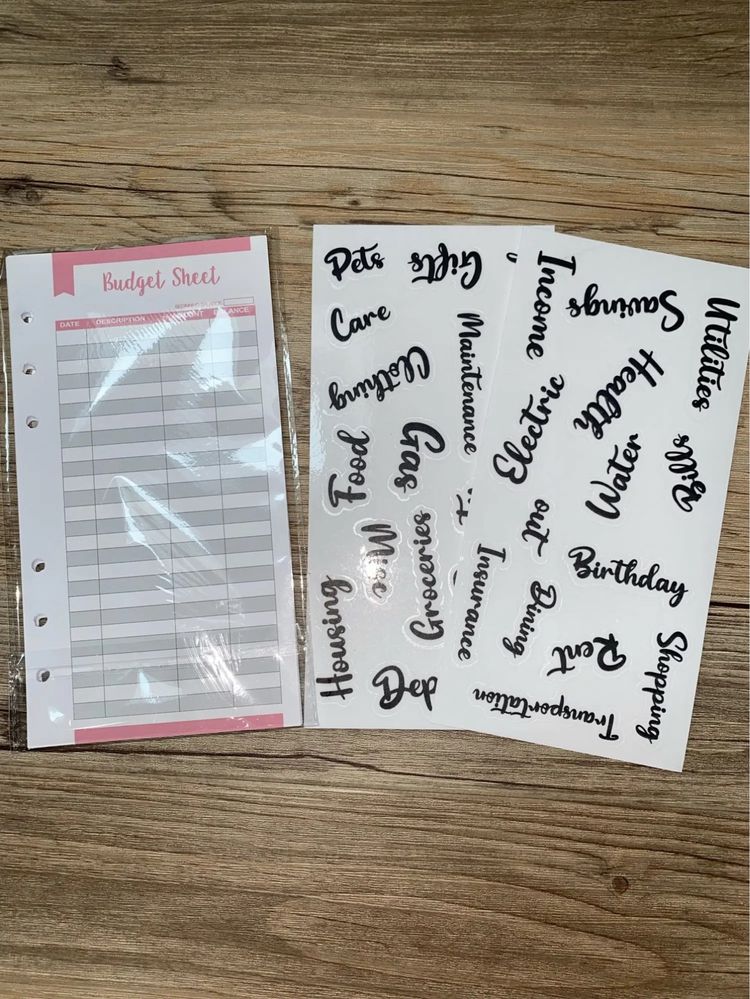 Budget Sheet
DATE DESCRIPTION BALANCE
Pets
Gifts
Care
Maintenance
Clothing
Food
Gas
Misc
Groceries
Housing
Income
Savings
Utilities
Health
Electric
Water
Bills
out
Birthday
Insurance
Dining
Rent
Shopping
Transportation